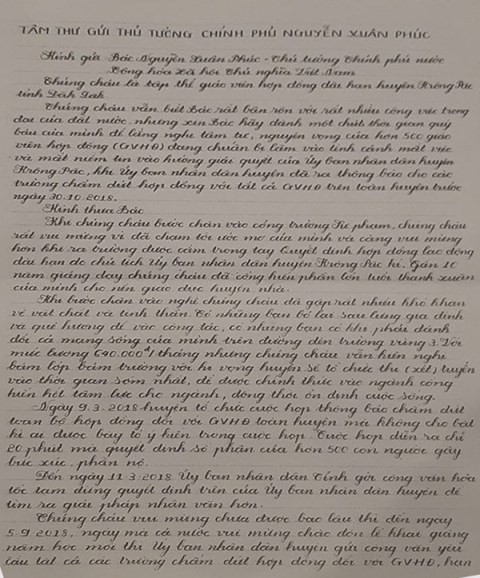 TÂM THƯ GỬI THỦ TƯỚNG CHÍNH PHỦ NGUYỄN XUÂN PHÚC
Kính gửi Bác Nguyễn Xuân Phúc - Thủ tướng Chính phủ nước
Cộng hòa Xã hội Chủ nghĩa Việt Nam
Chúng cháu là tập thể giáo viên hợp đồng dài hạn huyện Krông Pắc
tỉnh Đăk Lăk
Chúng cháu vẫn biết Bác rất bận rộn với rất nhiều công việc trọng
đại của đất nước. nhưng xin Bác hãy dành một chút thời gian quý
báu của mình để lắng nghe tâm tư, nguyện vọng của hơn 500 giáo
viên hợp đồng (GVHĐ) đang chuẩn bị lâm vào tình cảnh mất việc
và mất niềm tin vào hướng giải quyết của Ủy ban nhân dân huyện
Krông Pắc, khi Ủy ban nhân dân huyện đã ra thông báo cho các
trường chấm dứt hợp đồng với tất cả GVHĐ trên toàn huyện trước
ngày 30.10.2018.
Kính thưa Bác
Khi chúng cháu bước chân vào cổng trường Sư phạm, chúng cháu
rất vui mừng vì đã chạm tới ước mơ của mình và càng vui mừng
hơn khi ra trường được cầm trong tay Quyết định hợp đồng lao động
dài hạn do chủ tịch Ủy ban nhân dân huyện Krông Pắc kí. Gần 10
năm giảng dạy chúng cháu đã cống hiến phần lớn tuổi thanh xuân
của mình cho nền giáo dục huyện nhà.
Khi bước chân vào nghề chúng cháu đã gặp rất nhiều khó khăn
về vật chất và tinh thần. Có những bạn bỏ lại sau lưng gia đình
và quê hương để vào công tác, có những bạn có khi phải đánh
đổi cả mạng sống của mình trên đường đến trường vùng 3. Với
mức lương 640.000đ/tháng nhưng chúng cháu vẫn hiên nghi
bám lớp bám trường với hi vọng huyện sẽ tổ chức thi (xét) tuyển
vào thời gian sớm nhất, để được chính thức vào ngành cống
hiến hết tâm lực cho ngành, đồng thời ổn định cuộc sống.
Ngày 9.3.2018 huyện tổ chức cuộc họp thông báo chấm dứt
toàn bộ hợp đồng đối với GVHĐ toàn huyện mà không cho bất
kì ai được bày tỏ ý kiến trong cuộc họp. Cuộc họp diễn ra chỉ
20 phút mà quyết định số phận của hơn 500 con người gây
bức xúc, phẫn nộ.
Đến ngày 11.3.2018 Ủy ban nhân dân Tỉnh gởi công văn hỏa
tốc tạm dừng quyết định trên của Ủy ban nhân dân huyện để
tìm ra giải pháp nhân văn hơn.
Chúng cháu vui mừng chưa được bao lâu thì đến ngày
5.9.2018, ngày mà cả nước vui mừng chào đón lễ khai giảng
năm học mới thì Ủy ban nhân dân huyện gửi công văn yêu
cầu tất cả các trường chấm dứt hợp đồng đối với GVHĐ, hạn